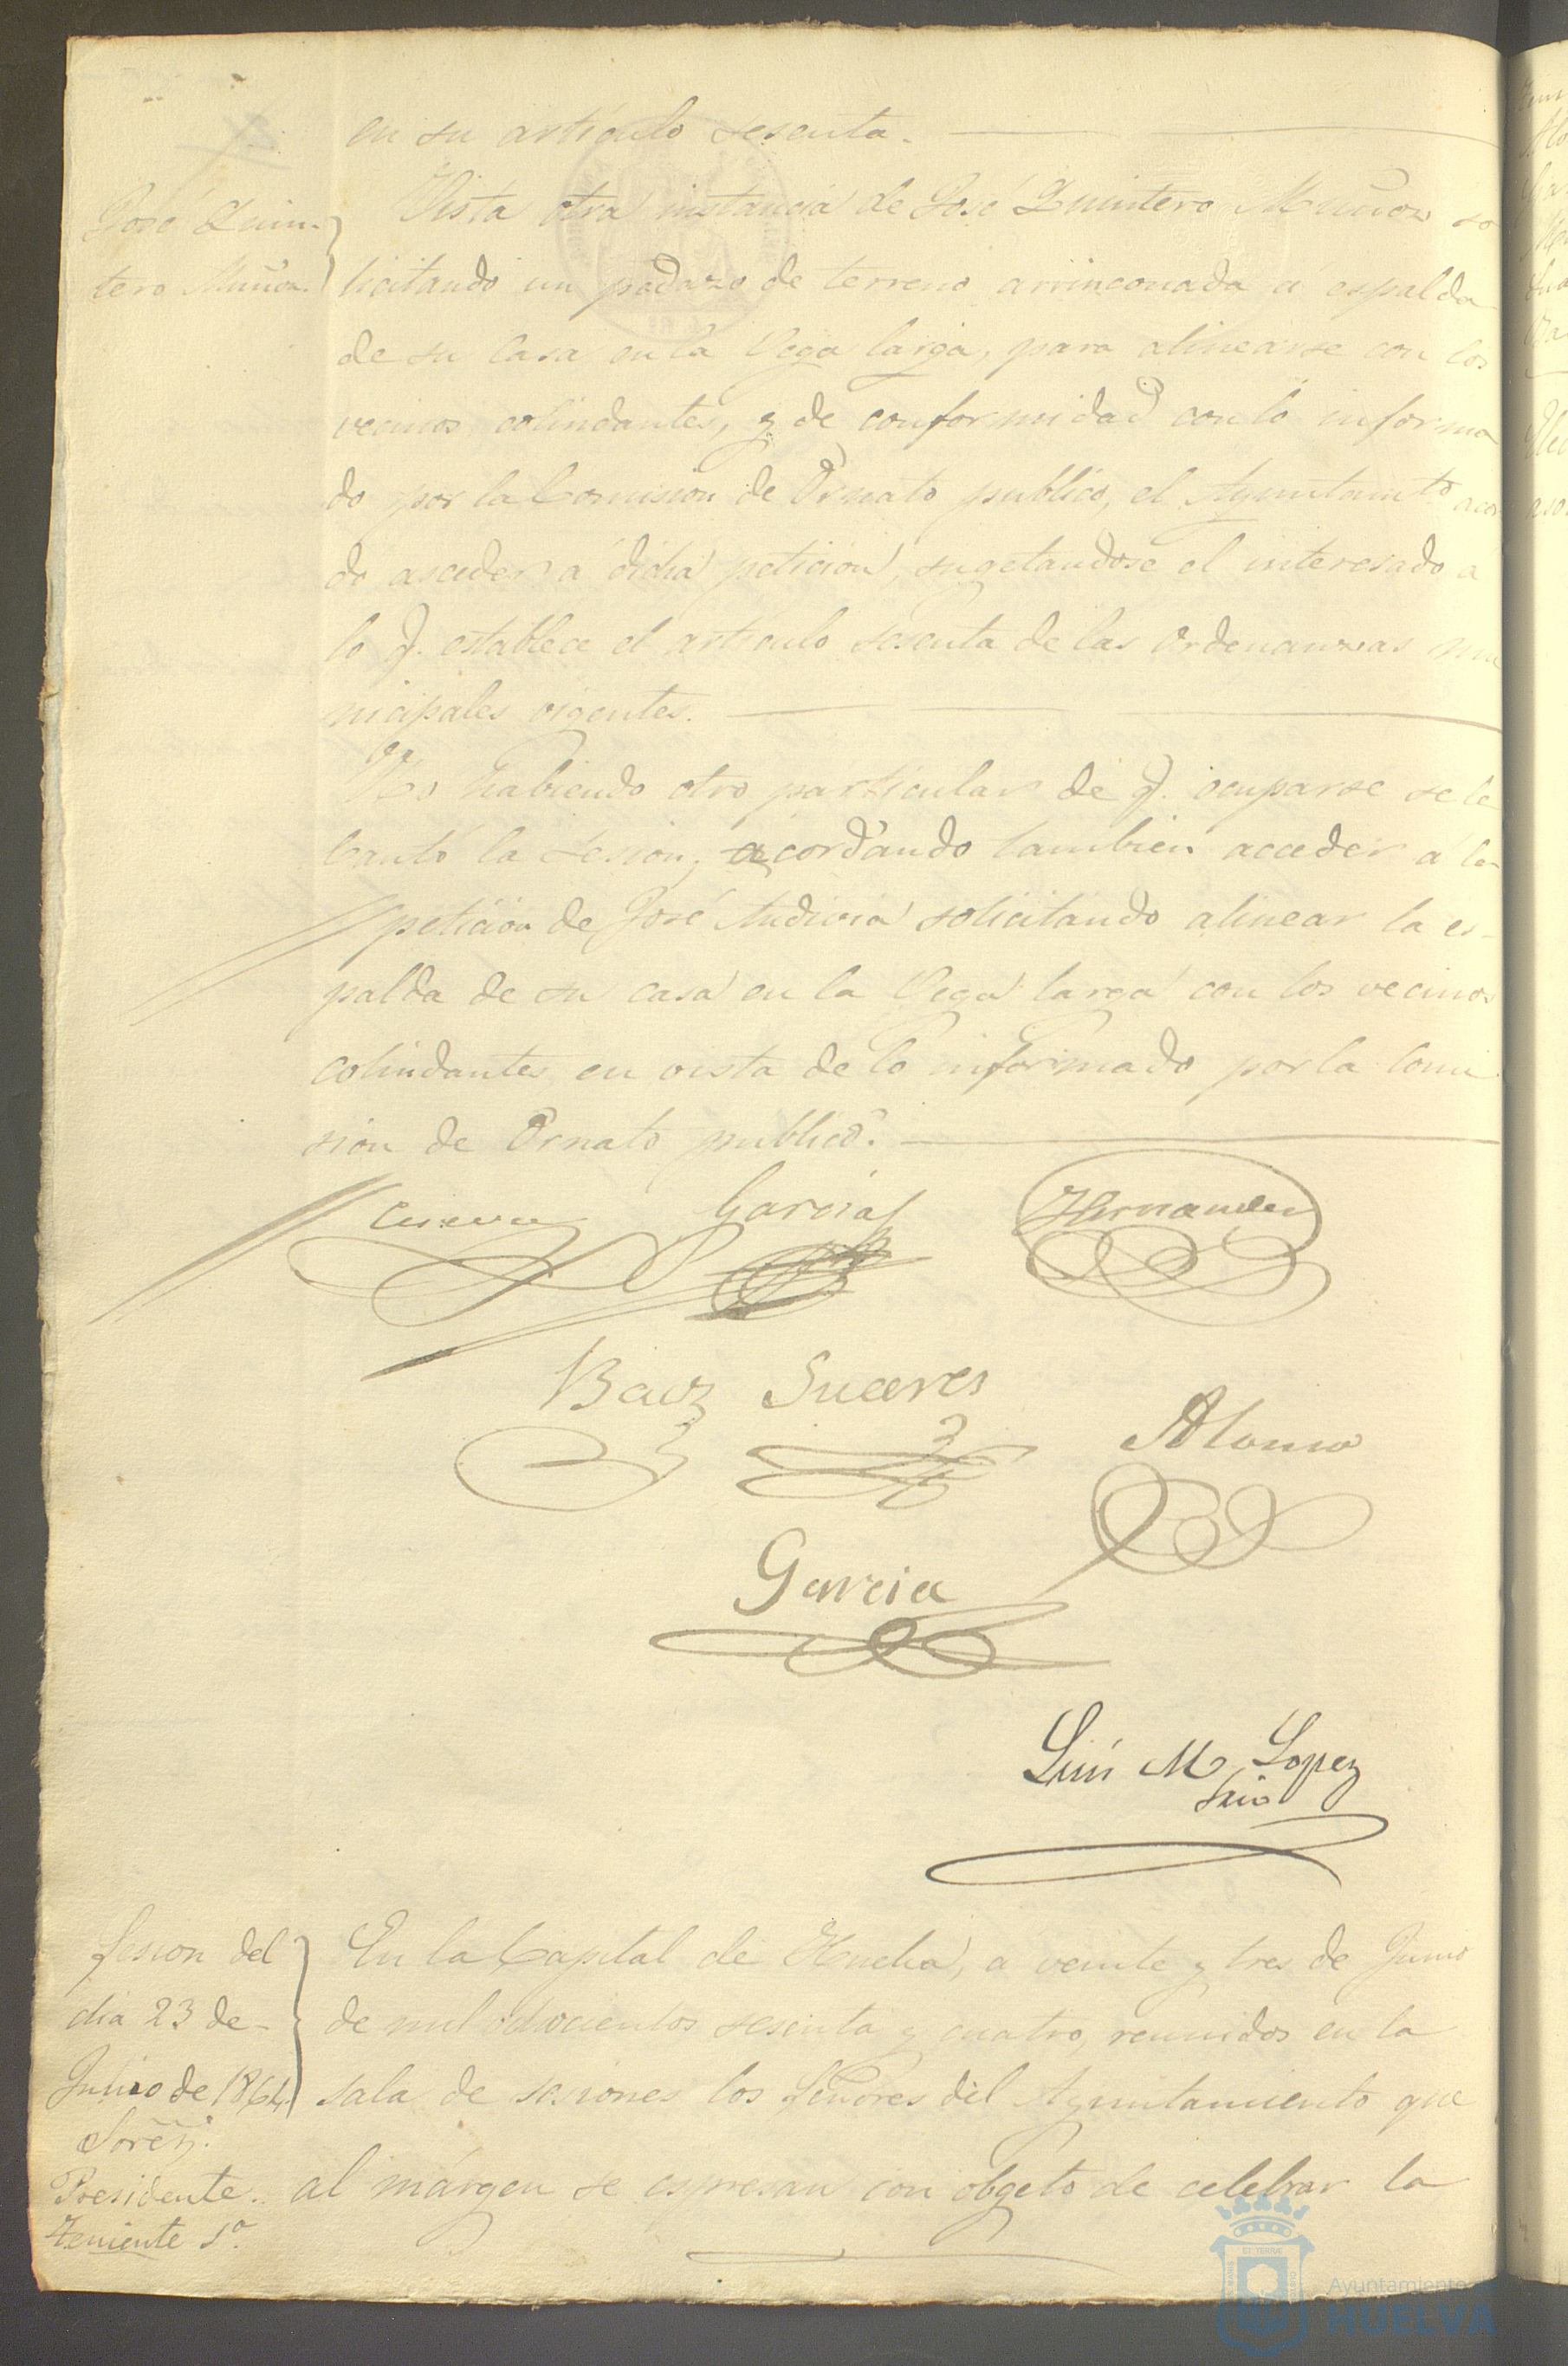 en su artículo sesenta.
José Quin-
tero Muñoz.
Vista otra instancia de José Quintero Muñoz so
licitando un pedazo de terreno arrinconada á espalda
de su casa en la Vega larga, para alinearse con los
vecinos colindantes, y de conformidad con lo informa
do por la Comision de Ornato publico, el Ayuntamto acor
dó acceder á dicha peticion, sugetandose el interesado á
lo q. establece el artículo sesenta de las Ordenanzas mu
nicipales vigentes.
No habiendo otro particular de q. ocuparse se le
bantó la sesion; acordando tambien acceder á la
peticion de José solicitando alinear la es-
palda de su casa en la Vega larga con los vecinos
colindantes en vista de lo informado por la Comi
sion de Ornato publico.
Garcia
Hernandez
Baez Suceres
Alonso
Garcia
Luis M Lopez
Srio
Sesion del
dia 23 de-
Junio de 1864
Sores.
Presidente.
Teniente 1º
En la Capital de Huelva, a veinte y tres de Junio
de mil ochocientos sesenta y cuatro, reunidos en la
sala de sesiones los Señores del Ayuntamiento que
al márgen se espresan con obgeto de celebrar la
Ayuntamiento
HUELVA